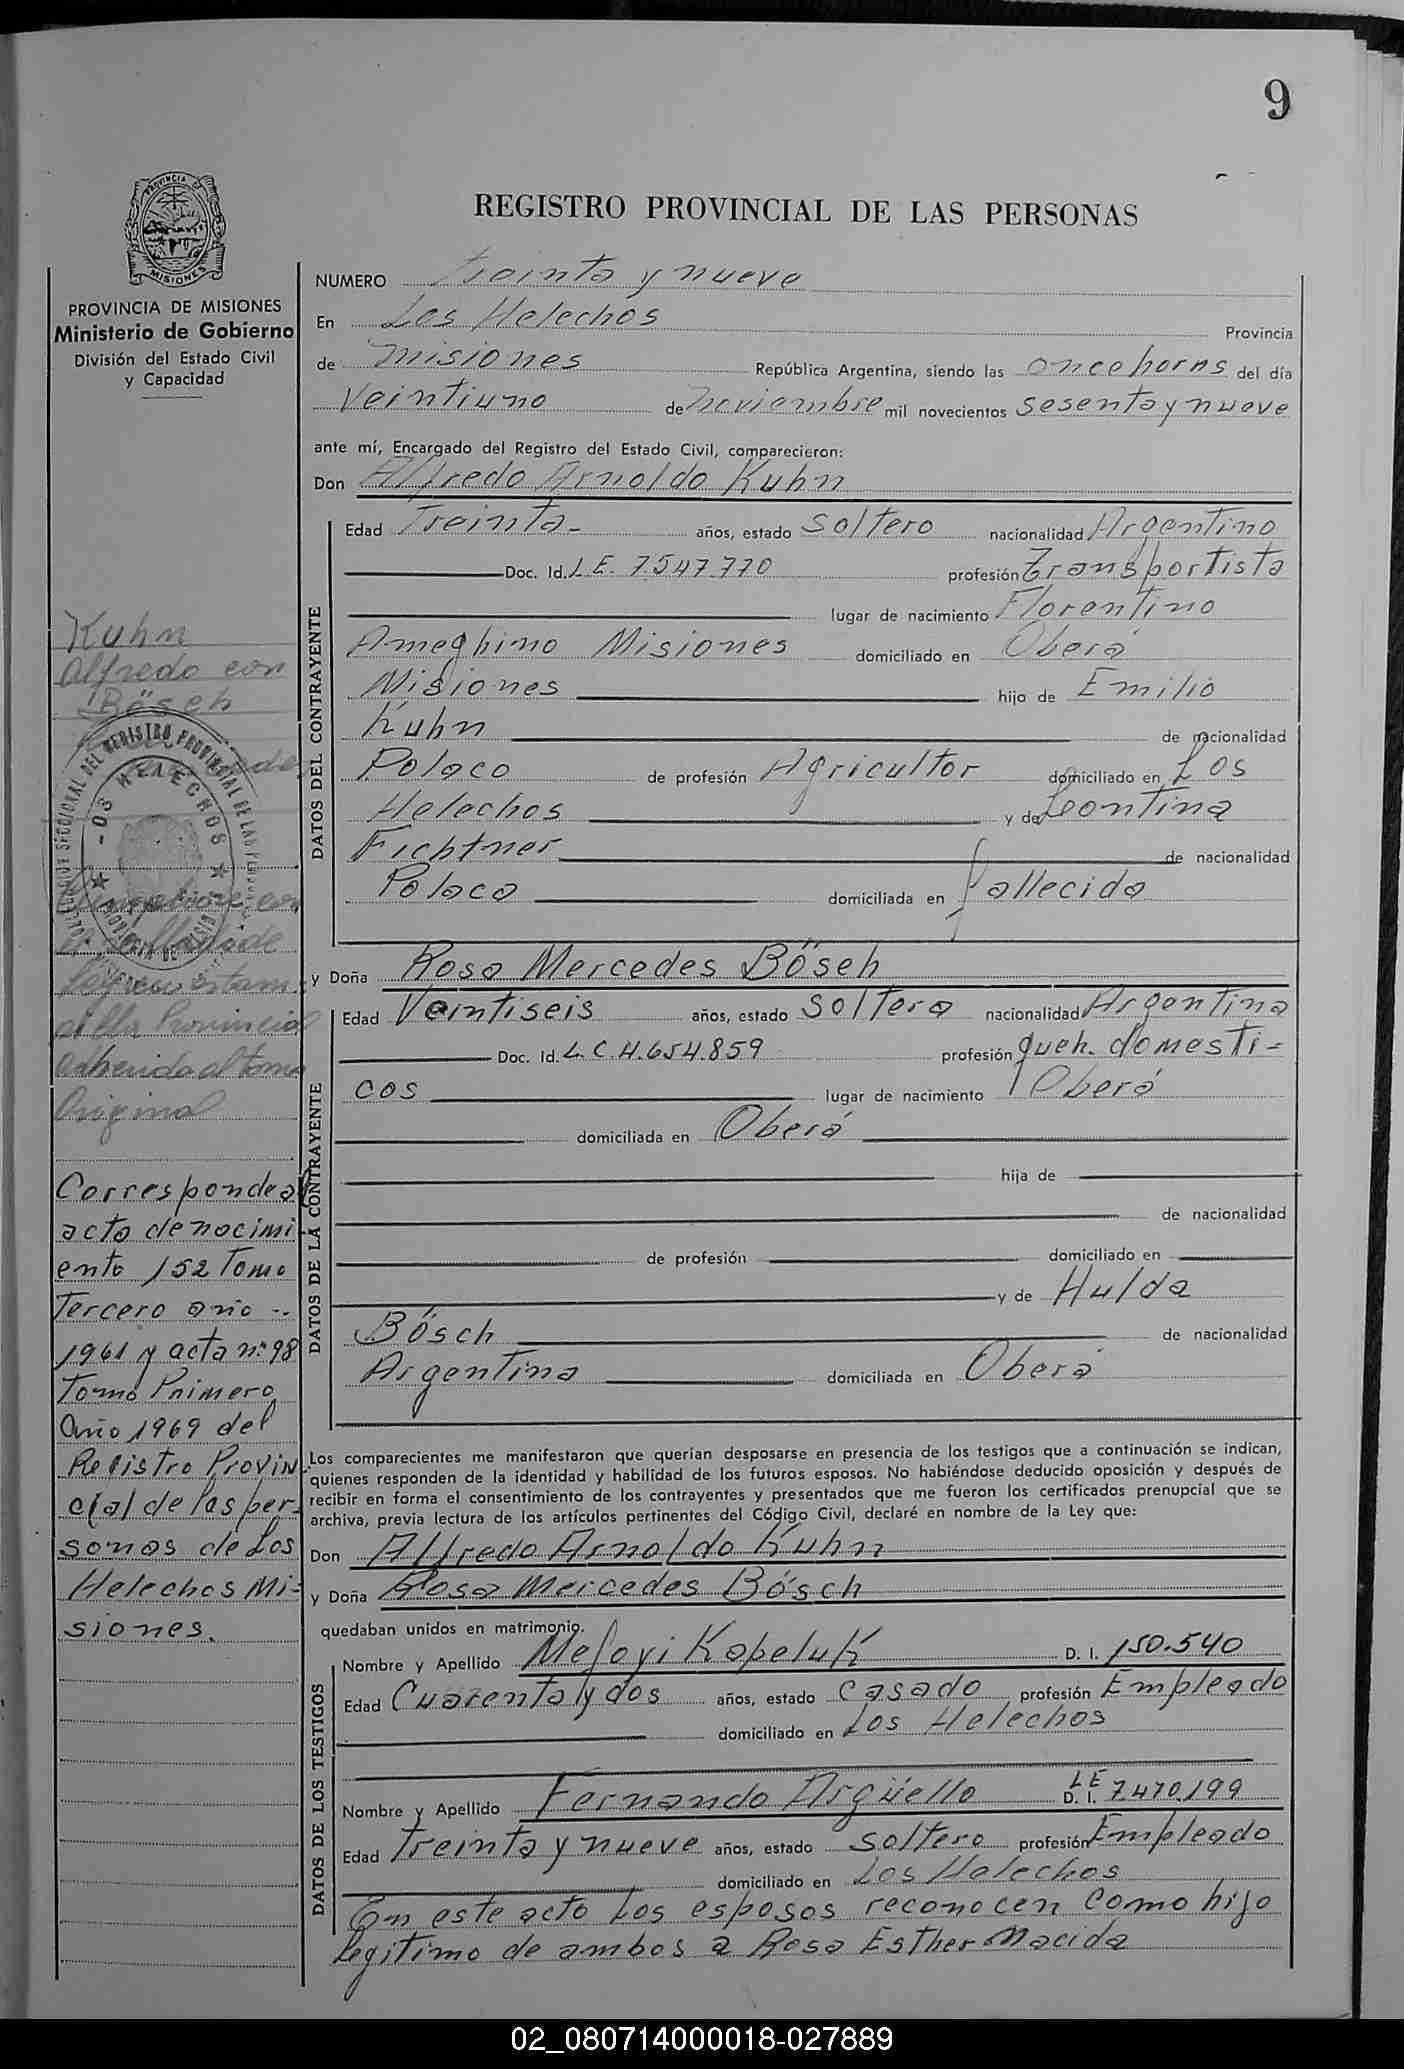 9
REGISTRO PROVINCIAL DE LAS PERSONAS
PROVINCIA DE MISIONES
Ministerio de Gobierno
División del Estado Civil
y Capacidad
NUMERO treinta y nueve
En Los Helechos Provincia
de Misiones República Argentina, siendo las once horas del día
Veintiuno de Noviembre mil novecientos sesenta y nueve
ante mí, Encargado del Registro del Estado Civil, comparecieron:
Don Alfredo Arnoldo Kuhn
DATOS DEL CONTRAYENTE
Edad Treinta- años, estado Soltero nacionalidad Argentino
Doc. Id. L.E. 7.547.770 profesión Transportista
lugar de nacimiento Florentino
Ameghino Misiones domiciliado en Oberá
Misiones hijo de Emilio
Kuhn de nacionalidad
Polaco de profesión Agricultor domiciliado en Los
Helechos y de Leontina
Fichtner de nacionalidad
Polaca domiciliada en fallecida
y Doña Rosa Mercedes Bösch
DATOS DE LA CONTRAYENTE
Edad Veintiseis años, estado Soltera nacionalidad Argentina
Doc. Id. L.C. 4.654.859 profesión queh. domesti-
cos lugar de nacimiento Oberá
domiciliada en Oberá
hija de
de nacionalidad
de profesión domiciliado en
y de Hulda
Bösch de nacionalidad
Argentina domiciliada en Oberá
Los comparecientes me manifestaron que querían desposarse en presencia de los testigos que a continuación se indican,
quienes responden de la identidad y habilidad de los futuros esposos. No habiéndose deducido oposición y después de
recibir en forma el consentimiento de los contrayentes y presentados que me fueron los certificados prenupcial que se
archiva, previa lectura de los artículos pertinentes del Código Civil, declaré en nombre de la Ley que:
Don Alfredo Arnoldo Kuhn
y Doña Rosa Mercedes Bösch
quedaban unidos en matrimonio.
DATOS DE LOS TESTIGOS
Nombre y Apellido Mefoyi Kapeluk D. I. 150.540
Edad Cuarenta y dos años, estado Casado profesión Empleado
domiciliado en Los Helechos
Nombre y Apellido Fernando Argüello LE D. I. 7.470.199
Edad Treinta y nueve años, estado Soltero profesión Empleado
domiciliado en Los Helechos
En este acto los esposos reconocen como hijo
legitimo de ambos a Rosa Esther Nacida
Kuhn
Alfredo con
Bösch
la sellada de
Provincial
adherida al tomo
Original
Corresponde al
acta de nacimi-
ento 152 Tomo
Tercero año --
1961 y acta nº 98
Tomo Primero
Año 1969 del
Registro Provin-
cial de las per-
sonas de Los
Helechos Mi-
siones.
02_080714000018-027889